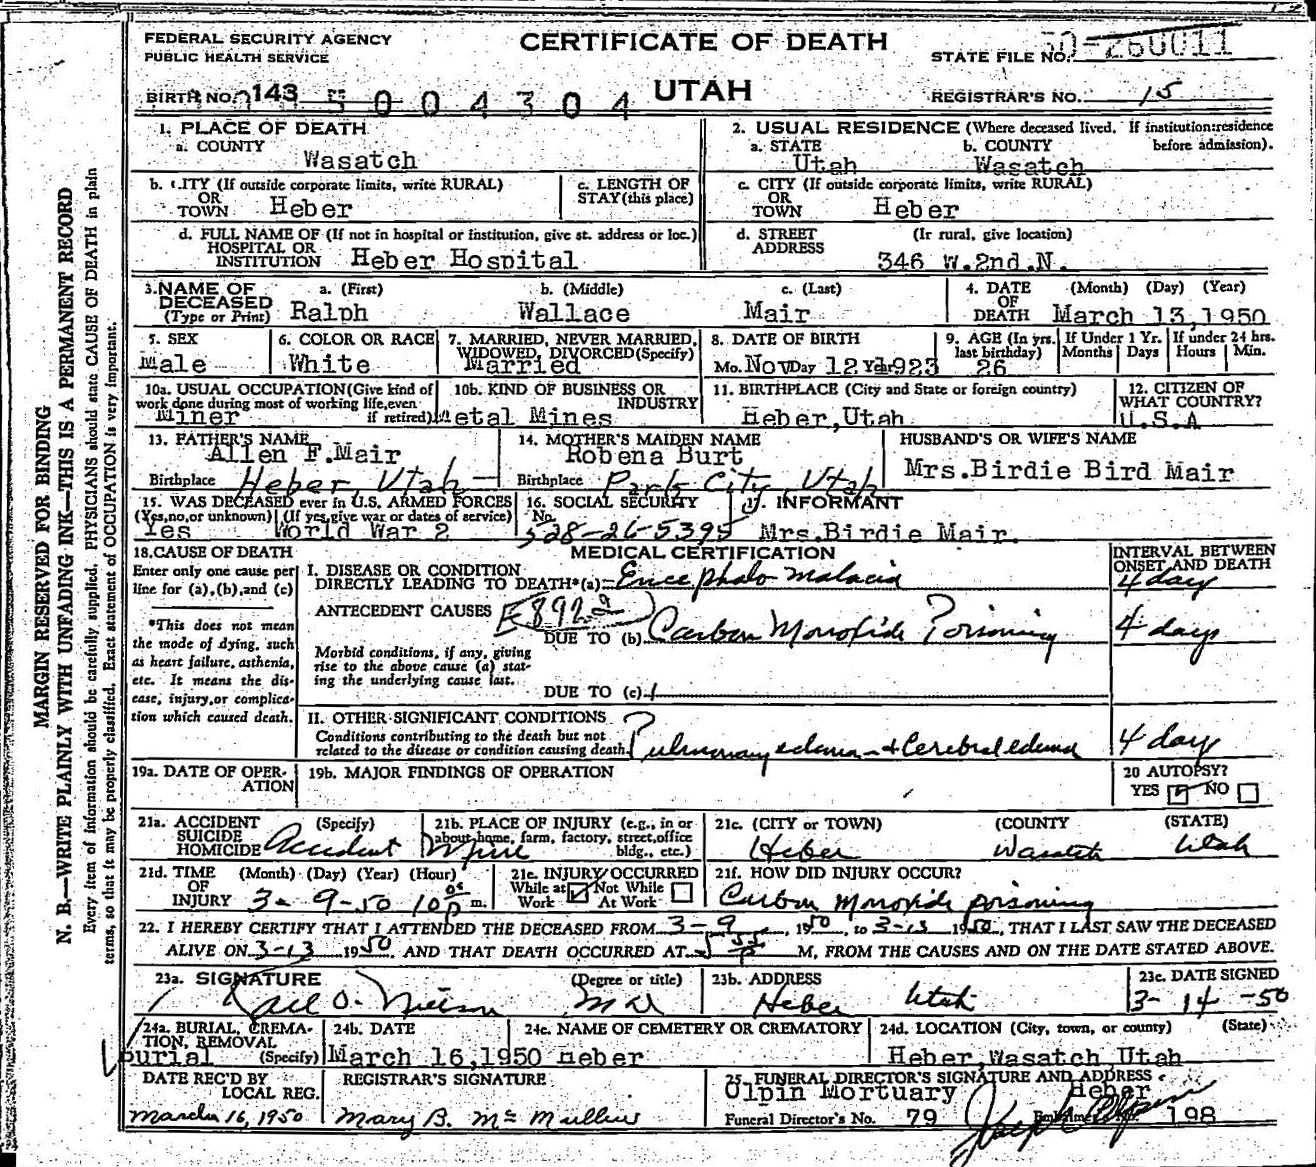 FEDERAL SECURITY AGENCY
PUBLIC HEALTH SERVICE
CERTIFICATE OF DEATH
UTAH
STATE FILE NO. 50-260011
BIRTH NO. 143 5004304
REGISTRAR'S NO. 15
MARGIN RESERVED FOR BINDING
N. B.—WRITE PLAINLY WITH UNFADING INK—THIS IS A PERMANENT RECORD
Every item of information should be carefully supplied. PHYSICIANS should state CAUSE OF DEATH in plain
terms, so that it may be properly classified. Exact statement of OCCUPATION is very important.
1. PLACE OF DEATH
a. COUNTY
Wasatch
2. USUAL RESIDENCE (Where deceased lived. If institution: residence
before admission).
a. STATE
Utah
b. COUNTY
Wasatch
b. CITY (If outside corporate limits, write RURAL)
OR
TOWN Heber
c. LENGTH OF
STAY (this place)
c. CITY (If outside corporate limits, write RURAL)
OR
TOWN Heber
d. FULL NAME OF (If not in hospital or institution, give st. address or loc.)
HOSPITAL OR
INSTITUTION Heber Hospital
d. STREET
ADDRESS
(If rural, give location)
346 W.2nd.N.
3. NAME OF
DECEASED
(Type or Print)
a. (First)
Ralph
b. (Middle)
Wallace
c. (Last)
Mair
4. DATE
OF
DEATH
(Month) (Day) (Year)
March 13,1950
5. SEX
Male
6. COLOR OR RACE
White
7. MARRIED, NEVER MARRIED,
WIDOWED, DIVORCED (Specify)
Married
8. DATE OF BIRTH
Mo. Nov Day 12 Yr. 1923
9. AGE (In yrs.
last birthday)
26
If Under 1 Yr.
Months Days
If under 24 hrs.
Hours Min.
10a. USUAL OCCUPATION (Give kind of
work done during most of working life, even
if retired)
Miner
10b. KIND OF BUSINESS OR
INDUSTRY
Metal Mines
11. BIRTHPLACE (City and State or foreign country)
Heber,Utah
12. CITIZEN OF
WHAT COUNTRY?
U.S.A
13. FATHER'S NAME
Allen F.Mair
Birthplace Heber, Utah
14. MOTHER'S MAIDEN NAME
Robena Burt
Birthplace Park City, Utah
HUSBAND'S OR WIFE'S NAME
Mrs.Birdie Bird Mair
15. WAS DECEASED ever in U.S. ARMED FORCES
(Yes, no, or unknown) (If yes, give war or dates of service)
Yes World War 2
16. SOCIAL SECURITY
No.
528-26-5395
17. INFORMANT
Mrs.Birdie Mair.
18. CAUSE OF DEATH
Enter only one cause per
line for (a), (b), and (c)
*This does not mean
the mode of dying, such
as heart failure, asthenia,
etc. It means the dis-
ease, injury, or complica-
tion which caused death.
MEDICAL CERTIFICATION
INTERVAL BETWEEN
ONSET AND DEATH
I. DISEASE OR CONDITION
DIRECTLY LEADING TO DEATH*(a) Encephalo Malacia
4 day
ANTECEDENT CAUSES E892
DUE TO (b) Carbon Monoxide Poisoning
4 days
Morbid conditions, if any, giving
rise to the above cause (a) stat-
ing the underlying cause last.
DUE TO (c)
II. OTHER SIGNIFICANT CONDITIONS
Conditions contributing to the death but not
related to the disease or condition causing death.
Pulmonary edema + Cerebral edema
4 days
19a. DATE OF OPER-
ATION
19b. MAJOR FINDINGS OF OPERATION
20 AUTOPSY?
YES NO
21a. ACCIDENT
SUICIDE
HOMICIDE
(Specify)
Accident
21b. PLACE OF INJURY (e.g., in or
about home, farm, factory, street, office
bldg., etc.)
21c. (CITY or TOWN) (COUNTY (STATE)
Heber Wasatch Utah
21d. TIME
OF
INJURY
(Month) (Day) (Year) (Hour)
3- 9-50 10 p m.
21e. INJURY OCCURRED
While at Work Not While At Work
21f. HOW DID INJURY OCCUR?
Carbon Monoxide poisoning
22. I HEREBY CERTIFY THAT I ATTENDED THE DECEASED FROM 3-9, 1950, to 3-13 1950, THAT I LAST SAW THE DECEASED
ALIVE ON 3-13 1950 AND THAT DEATH OCCURRED AT 5 55 P M, FROM THE CAUSES AND ON THE DATE STATED ABOVE.
23a. SIGNATURE
O. Nielson
(Degree or title)
M D
23b. ADDRESS
Heber Utah
23c. DATE SIGNED
3- 14 -50
24a. BURIAL, CREMA-
TION, REMOVAL
(Specify)
burial
24b. DATE
March 16,1950
24c. NAME OF CEMETERY OR CREMATORY
Heber
24d. LOCATION (City, town, or county) (State)
Heber,Wasatch Utah
DATE REC'D BY
LOCAL REG.
March 16, 1950
REGISTRAR'S SIGNATURE
Mary B. McMullin
25. FUNERAL DIRECTOR'S SIGNATURE AND ADDRESS
Olpin Mortuary Heber
Funeral Director's No. 79
198